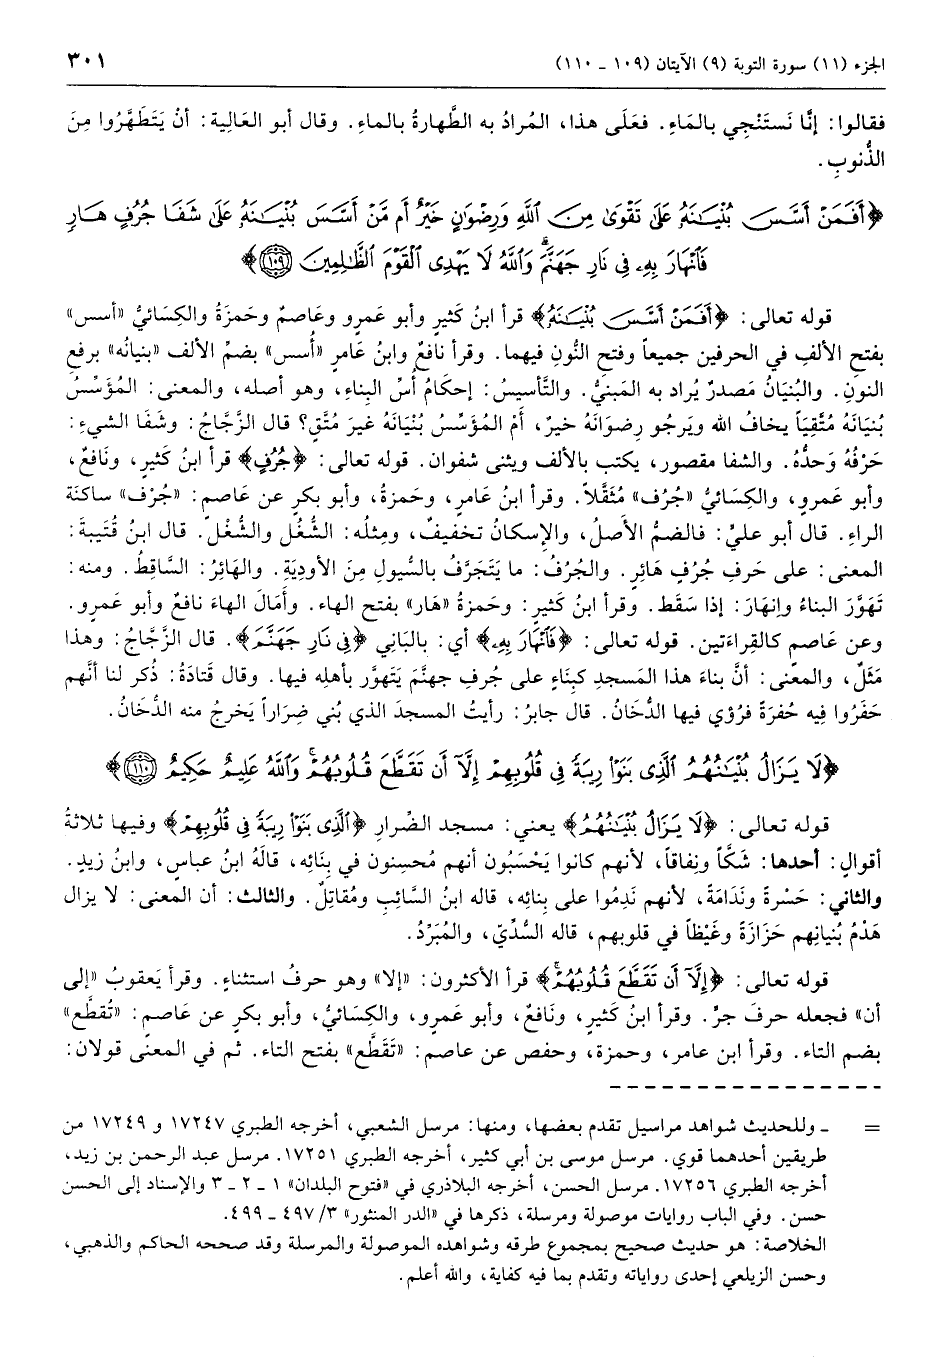 الجزء (١١) سورة التوبة (٩) الآيتان (١٠٩ - ١١٠) ٣٠١
فقالوا: إنَّا نَستَنْجِي بالمَاءِ. فعَلَى هذا، المُرادُ به الطَّهارةُ بالماءِ. وقال أبو العَالِية: أنْ يَتَطَهَّرُوا مِنَ
الذُّنوبِ.
﴿أَفَمَنْ أَسَّسَ بُنْيَـٰنَهُ عَلَىٰ تَقْوَىٰ مِنَ ٱللَّهِ وَرِضْوَٰنٍ خَيْرٌ أَم مَّنْ أَسَّسَ بُنْيَـٰنَهُ عَلَىٰ شَفَا جُرُفٍ هَارٍ
فَٱنْهَارَ بِهِۦ فِى نَارِ جَهَنَّمَۗ وَٱللَّهُ لَا يَهْدِى ٱلْقَوْمَ ٱلظَّـٰلِمِينَ ۝١٠٩﴾
قوله تعالى: ﴿أَفَمَنْ أَسَّسَ بُنْيَـٰنَهُ﴾ قرأ ابنُ كَثيرٍ وأبو عَمرو وعَاصمٌ وحَمزةُ والكِسَائيُّ «أسس»
بفتح الألفِ في الحرفين جميعاً وفتح النُّونِ فيهما. وقرأ نافعٌ وابنُ عَامرٍ «أُسس» بضمِّ الألف «بنيانُه» برفع
النونِ. والبُنيَانُ مَصدرٌ يُراد به المَبنيُّ. والتَّأسيسُ: إحكَامُ أُسِّ البِناء، وهو أصله، والمعنى: المُؤَسِّسُ
بُنيَانَهُ مُتَّقِيَاً يخافُ الله ويَرجُو رِضوَانَهُ خيرٌ، أَمْ المُؤَسِّسُ بُنْيَانَهُ غيرَ مُتَّقٍ؟ قال الزَّجَّاجُ: وشَفَا الشيءِ:
حَرْفُهُ وَحدُّهُ. والشفا مقصور، يكتب بالألف ويثنى شفوان. قوله تعالى: ﴿جُرُفٍ﴾ قرأ ابنُ كَثيرٍ، ونَافعٌ،
وأبو عَمرو، والكِسَائيُّ «جُرُف» مُثَقَّلاً. وقرأ ابنُ عَامرٍ، وحَمزةُ، وأبو بكرٍ عن عَاصم: «جُرْف» ساكنَة
الراءِ. قال أبو عليٍّ: فالضمُّ الأصلُ، والإسكَان تخفيفٌ، ومِثلُه: الشُّغُل والشُّغْل. قال ابنُ قُتَيبةَ:
المعنى: على حَرفِ جُرُفٍ هَائرٍ. والجُرُفُ: ما يَتَجَرَّفُ بالسُّيولِ مِنَ الأودِيَةِ. والهَائِرُ: السَّاقِطُ. ومنه:
تَهَوَّرَ البناءُ وانهَارَ: إذا سَقَط. وقرأ ابنُ كَثيرٍ: وحَمزةُ «هَار» بفتح الهاء. وأَمَالَ الهاءَ نافعٌ وأبو عَمرو.
وعن عَاصم كالقِراءَتين. قوله تعالى: ﴿فَٱنْهَارَ بِهِۦ﴾ أي: بالبَانِي ﴿فِى نَارِ جَهَنَّمَ﴾. قال الزَّجَّاجُ: وهذا
مَثَلٌ، والمعنَى: أنَّ بناءَ هذا المَسجدِ كبِنَاءٍ على جُرفِ جهنَّمَ يَتَهوَّر بأهلِه فيها. وقال قَتادَةُ: ذُكر لنا أنَّهم
حَفَرُوا فِيه حُفرَةً فرُؤي فيها الدُّخَانُ. قال جابرُ: رأيتُ المسجدَ الذي بُني ضِرَاراً يَخرجُ منه الدُّخَانُ.
﴿لَا يَزَالُ بُنْيَـٰنُهُمُ ٱلَّذِى بَنَوْا۟ رِيبَةً فِى قُلُوبِهِمْ إِلَّآ أَن تَقَطَّعَ قُلُوبُهُمْۗ وَٱللَّهُ عَلِيمٌ حَكِيمٌ ۝١١٠﴾
قوله تعالى: ﴿لَا يَزَالُ بُنْيَـٰنُهُمُ﴾ يعني: مسجد الضِّرارِ ﴿ٱلَّذِى بَنَوْا۟ رِيبَةً فِى قُلُوبِهِمْ﴾ وفيها ثلاثةُ
أقوالٍ: أحدها: شَكَّاً ونِفاقاً، لأنهم كانوا يَحْسَبُون أنهم مُحسِنون في بِنَائِه، قالَهُ ابنُ عباسٍ، وابنُ زيدٍ.
والثاني: حَسْرةً ونَدَامَةً، لأنهم نَدِمُوا على بِنائِه، قاله ابنُ السَّائبِ ومُقاتلٌ. والثالث: أن المعنى: لا يزال
هَدْمُ بُنيانِهم حَزَازَةً وغَيْظاً في قلوبهم، قاله السُّدِّيّ، والمُبَرِّدُ.
قوله تعالى: ﴿إِلَّآ أَن تَقَطَّعَ قُلُوبُهُمْ﴾ قرأ الأكثرون: «إلا» وهو حرفُ استثناءٍ. وقرأ يَعقوبُ «إلى
أن» فجعله حرفَ جرٍّ. وقرأ ابنُ كَثيرٍ، ونَافعٌ، وأبو عَمرو، والكِسَائيُّ، وأبو بكرٍ عن عَاصم: «تُقطَّع»
بضم التاء. وقرأ ابن عامر، وحمزة، وحفص عن عاصم: «تَقَطَّع» بفتح التاء. ثم في المعنى قولان:
= - وللحديث شواهد مراسيل تقدم بعضها، ومنها: مرسل الشعبي، أخرجه الطبري ١٧٢٤٧ و ١٧٢٤٩ من
طريقين أحدهما قوي. مرسل موسى بن أبي كثير، أخرجه الطبري ١٧٢٥١. مرسل عبد الرحمن بن زيد،
أخرجه الطبري ١٧٢٥٦. مرسل الحسن، أخرجه البلاذري في «فتوح البلدان» ١ - ٢ - ٣ والإسناد إلى الحسن
حسن. وفي الباب روايات موصولة ومرسلة، ذكرها في «الدر المنثور» ٣/ ٤٩٧ - ٤٩٩.
الخلاصة: هو حديث صحيح بمجموع طرقه وشواهده الموصولة والمرسلة وقد صححه الحاكم والذهبي،
وحسن الزيلعي إحدى رواياته وتقدم بما فيه كفاية، والله أعلم.